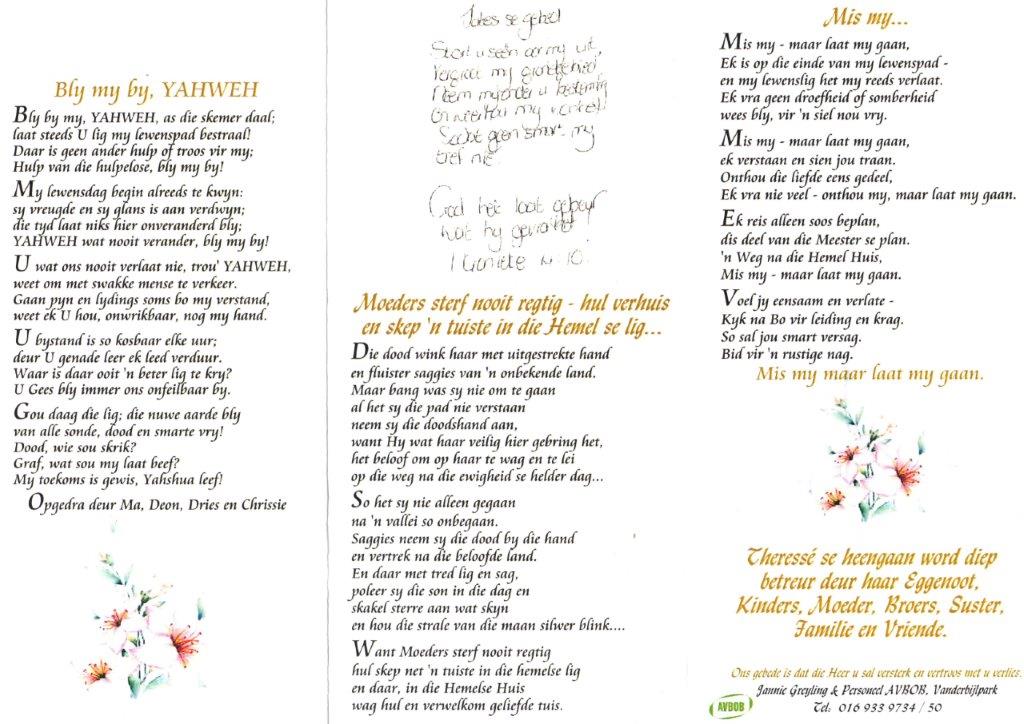 Bly my by, YAHWEH
Bly by my, YAHWEH, as die skemer daal;
laat steeds U lig my lewenspad bestraal!
Daar is geen ander hulp of troos vir my;
Hulp van die hulpelose, bly my by!
My lewensdag begin alreeds te kwyn:
sy vreugde en sy glans is aan verdwyn;
die tyd laat niks hier onveranderd bly;
YAHWEH wat nooit verander, bly my by!
U wat ons nooit verlaat nie, trou' YAHWEH,
weet om met swakke mense te verkeer.
Gaan pyn en lydings soms bo my verstand,
weet ek U hou, onwrikbaar, nog my hand.
U bystand is so kosbaar elke uur;
deur U genade leer ek leed verduur.
Waar is daar ooit 'n beter lig te kry?
U Gees bly immer ons onfeilbaar by.
Gou daag die lig; die nuwe aarde bly
van alle sonde, dood en smarte vry!
Dood, wie sou skrik?
Graf, wat sou my laat beef?
My toekoms is gewis, Yahshua leef!
Opgedra deur Ma, Deon, Dries en Chrissie
se gebed
my uit,
my
Neem u
my
geen smart my
tref nie
God het laat gebeur
wat hy
10!
Moeders sterf nooit regtig - hul verhuis
en skep 'n tuiste in die Hemel se lig...
Die dood wink haar met uitgestrekte hand
en fluister saggies van 'n onbekende land.
Maar bang was sy nie om te gaan
al het sy die pad nie verstaan
neem sy die doodshand aan,
want Hy wat haar veilig hier gebring het,
het beloof om op haar te wag en te lei
op die weg na die ewigheid se helder dag...
So het sy nie alleen gegaan
na 'n vallei so onbegaan.
Saggies neem sy die dood by die hand
en vertrek na die beloofde land.
En daar met tred lig en sag,
poleer sy die son in die dag en
skakel sterre aan wat skyn
en hou die strale van die maan silwer blink....
Want Moeders sterf nooit regtig
hul skep net 'n tuiste in die hemelse lig
en daar, in die Hemelse Huis
wag hul en verwelkom geliefde tuis.
Mis my...
Mis my - maar laat my gaan,
Ek is op die einde van my lewenspad -
en my lewenslig het my reeds verlaat.
Ek vra geen droefheid of somberheid
wees bly, vir 'n siel nou vry.
Mis my - maar laat my gaan,
ek verstaan en sien jou traan.
Onthou die liefde eens gedeel,
Ek vra nie veel - onthou my, maar laat my gaan.
Ek reis alleen soos beplan,
dis deel van die Meester se plan.
'n Weg na die Hemel Huis,
Mis my - maar laat my gaan.
Voel jy eensaam en verlate -
Kyk na Bo vir leiding en krag.
So sal jou smart versag.
Bid vir 'n rustige nag.
Mis my maar laat my gaan.
Theressé se heengaan word diep
betreur deur haar Eggenoot,
Kinders, Moeder, Broers, Suster,
Familie en Vriende.
Ons gebede is dat die Heer u sal versterk en vertroos met u verlies.
Jannie Greyling & Personeel AVBOB, Vanderbijlpark
AVBOB
Tel: 016 933 9734 / 50